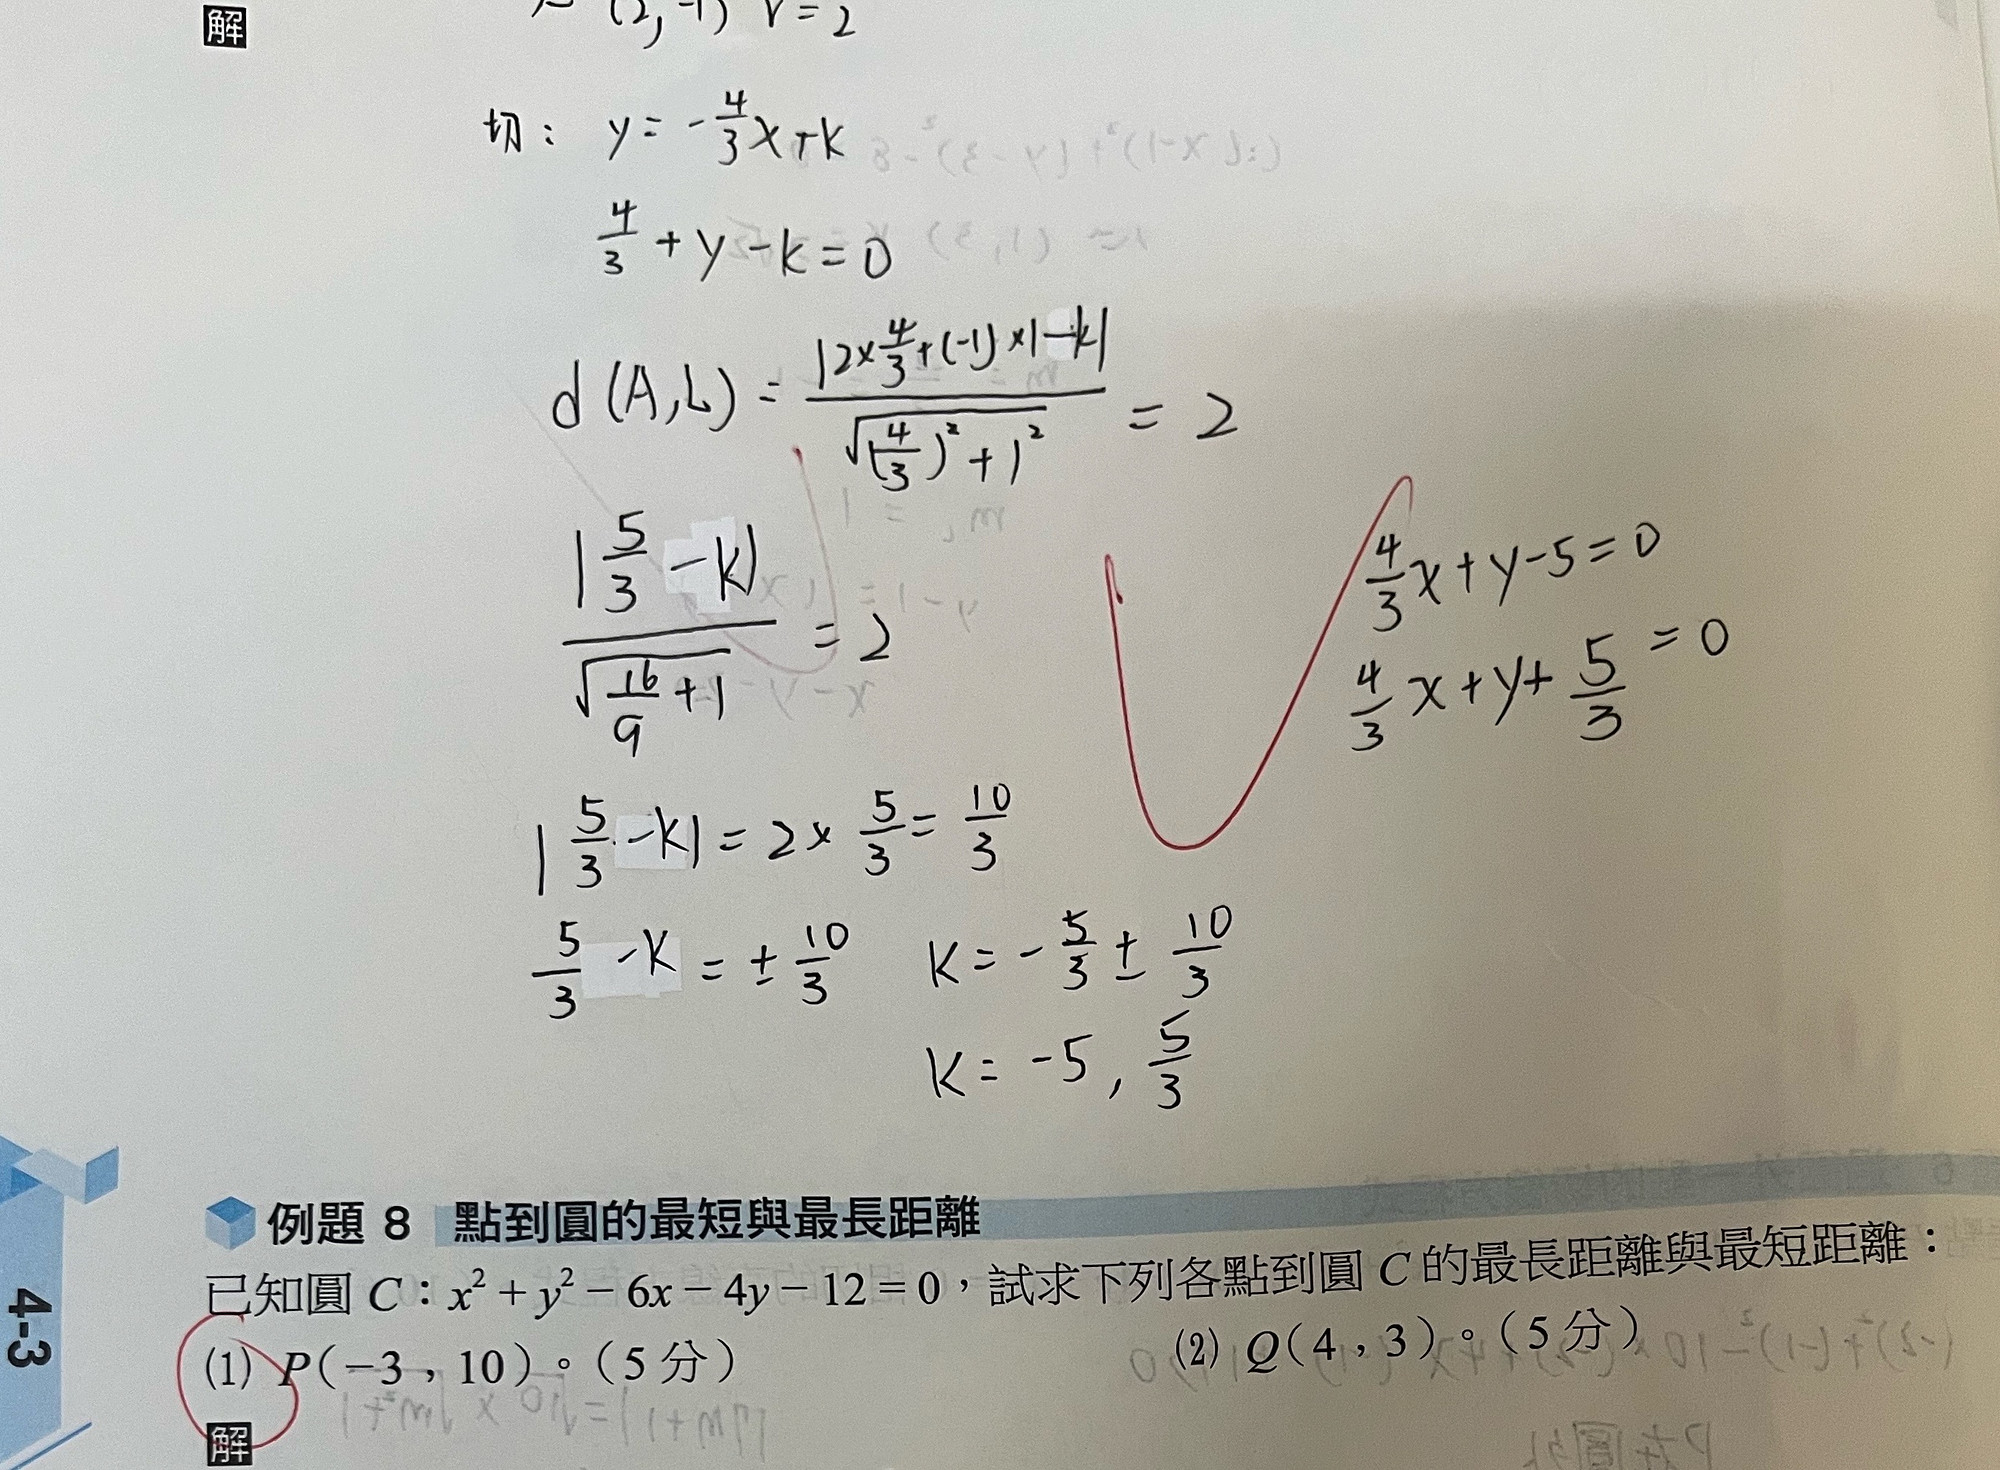 解
(2, -1) r = 2
切: y = -4/3 x + k
4/3 + y - k = 0
d(A,L) = |2×4/3+(-1)×1-k| / √((4/3)²+1²) = 2
|5/3 - k| / √(16/9 + 1) = 2
4/3 x + y - 5 = 0
4/3 x + y + 5/3 = 0
|5/3 - k| = 2 × 5/3 = 10/3
5/3 - k = ± 10/3 k = - 5/3 ± 10/3
k = -5, 5/3
例題 8 點到圓的最短與最長距離
已知圓 C：x² + y² − 6x − 4y − 12 = 0，試求下列各點到圓 C 的最長距離與最短距離：
(1) P(−3，10)。（5 分） (2) Q(4，3)。（5 分）
解
4-3